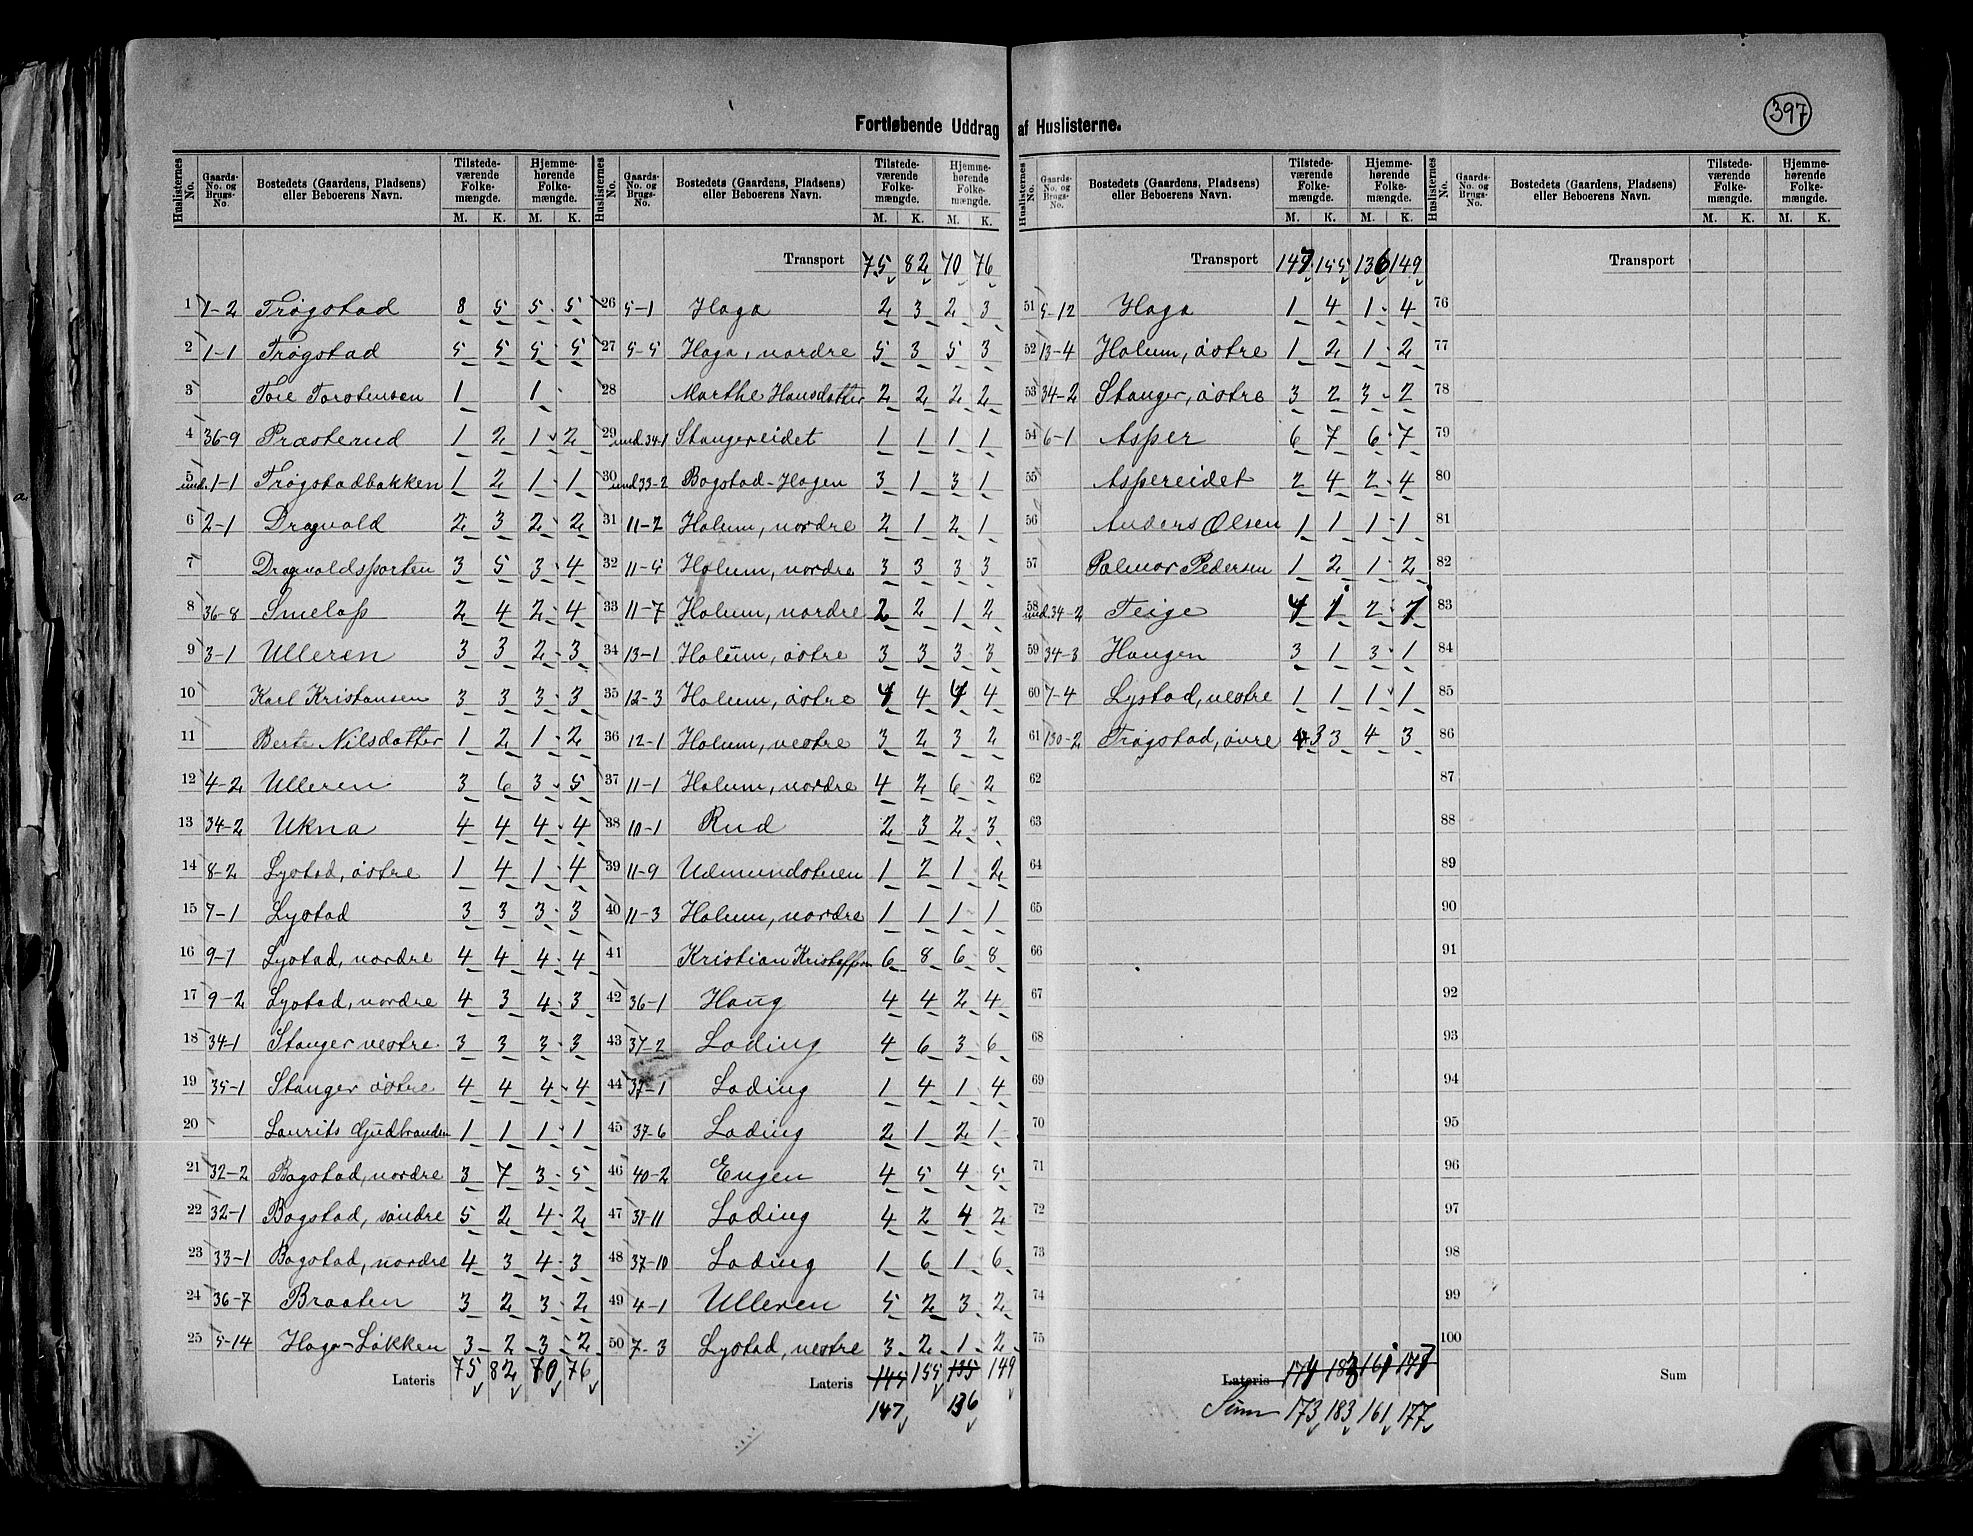 397
Fortløbende Uddrag af Huslisterne.
Huslisternes No. | Gaards-No. og Brugs-No. | Bostedets (Gaardens, Pladsens) eller Beboerens Navn. | Tilstedeværende Folkemængde. M. K. | Hjemmehørende Folkemængde. M. K.
1 1-2 Trøgstad 8 5 5 5
2 1-1 Trøgstad 5 5 5 5
3 Tore Torstensen 1 1
4 36-9 Præsterud 1 2 1 2
5 und. 1-1 Trøgstadbakken 1 2 1 1
6 2-1 Dragvold 2 3 2 2
7 Dragvoldsporten 3 5 3 4
8 36-8 Smeløp 2 4 2 4
9 3-1 Ulleren 3 3 2 3
10 Karl Kristansen 3 3 3 3
11 Berte Nilsdatter 1 2 1 2
12 4-2 Ulleren 3 6 3 5
13 34-2 Ukna 4 4 4 4
14 8-2 Lystad, østre 1 4 1 4
15 7-1 Lystad 3 3 3 3
16 9-1 Lystad, nordre 4 4 4 4
17 9-2 Lystad, nordre 4 3 4 3
18 34-1 Stanger vestre 3 3 3 3
19 35-1 Stanger østre 4 4 4 4
20 Laurits Gudbrandsen 1 1 1 1
21 32-2 Bogstad, nordre 3 7 3 5
22 32-1 Bogstad, søndre 5 2 4 2
23 33-1 Bogstad, nordre 4 3 4 3
24 36-7 Braaten 3 2 3 2
25 5-14 Haga-Løkken 3 2 3 2
Lateris 75 82 70 76
Huslisternes No. | Gaards-No. og Brugs-No. | Bostedets (Gaardens, Pladsen) eller Beboerens Navn. | Tilstedeværende Folkemængde. M. K. | Hjemmehørende Folkemængde. M. K.
Transport 75 82 70 76
26 5-1 Haga 2 3 2 3
27 5-5 Haga, nordre 5 3 5 3
28 Marthe Hansdatter 2 2 2 2
29 und. 34-1 Stangereidet 1 1 1 1
30 und 33-2 Bogstad-Hagen 3 1 3 1
31 11-2 Holum, nordre 2 1 2 1
32 11-5 Holum, nordre 3 3 3 3
33 11-7 Holum, nordre 2 2 1 2
34 13-1 Holum, østre 3 3 3 3
35 12-3 Holum, østre 4 4 4 4
36 12-1 Holum, vestre 3 2 3 2
37 11-1 Holum, nordre 4 2 6 2
38 10-1 Rud 2 3 2 3
39 11-9 Udmundstuen 1 2 1 2
40 11-3 Holum, nordre 1 1 1 1
41 Kristian Kristoffersen 6 8 6 8
42 36-1 Haug 4 4 2 4
43 37-2 Loding 4 6 3 6
44 37-1 Loding 1 4 1 4
45 37-6 Loding 2 1 2 1
46 40-2 Engen 4 5 4 5
47 37-11 Loding 4 2 4 2
48 37-10 Loding 1 6 1 6
49 4-1 Ulleren 5 2 3 2
50 7-3 Lystad, vestre 3 2 1 2
Lateris 145 155 135 149
147 136
Huslisternes No. | Gaards-No. og Brugs-No. | Bostedets (Gaardens, Pladsens) eller Beboerens Navn. | Tilstedeværende Folkemængde. M. K. | Hjemmehørende Folkemængde. M. K.
Transport 147 155 136 149
51 5-12 Haga 1 4 1 4
52 13-4 Holum, østre 1 2 1 2
53 34-2 Stanger, østre 3 2 3 2
54 6-1 Asper 6 7 6 7
55 Aspereidet 2 4 2 4
56 Anders Olsen 1 1 1 1
57 Palmar Pedersen 1 2 1 2
58 und. 34-2 Teige 4 1 2 1
59 34-3 Haugen 3 1 3 1
60 7-4 Lystad, vestre 1 1 1 1
61 130-2 Trøgstad, øvre 3 3 4 3
62
63
64
65
66
67
68
69
70
71
72
73
74
75
Lateris 183 161
Sum 173 183 161 177
Huslisternes No. | Gaards-No. og Brugs-No. | Bostedets (Gaardens, Pladsens) eller Beboerens Navn. | Tilstedeværende Folkemængde. M. K. | Hjemmehørende Folkemængde. M. K.
Transport
76
77
78
79
80
81
82
83
84
85
86
87
88
89
90
91
92
93
94
95
96
97
98
99
100
Sum